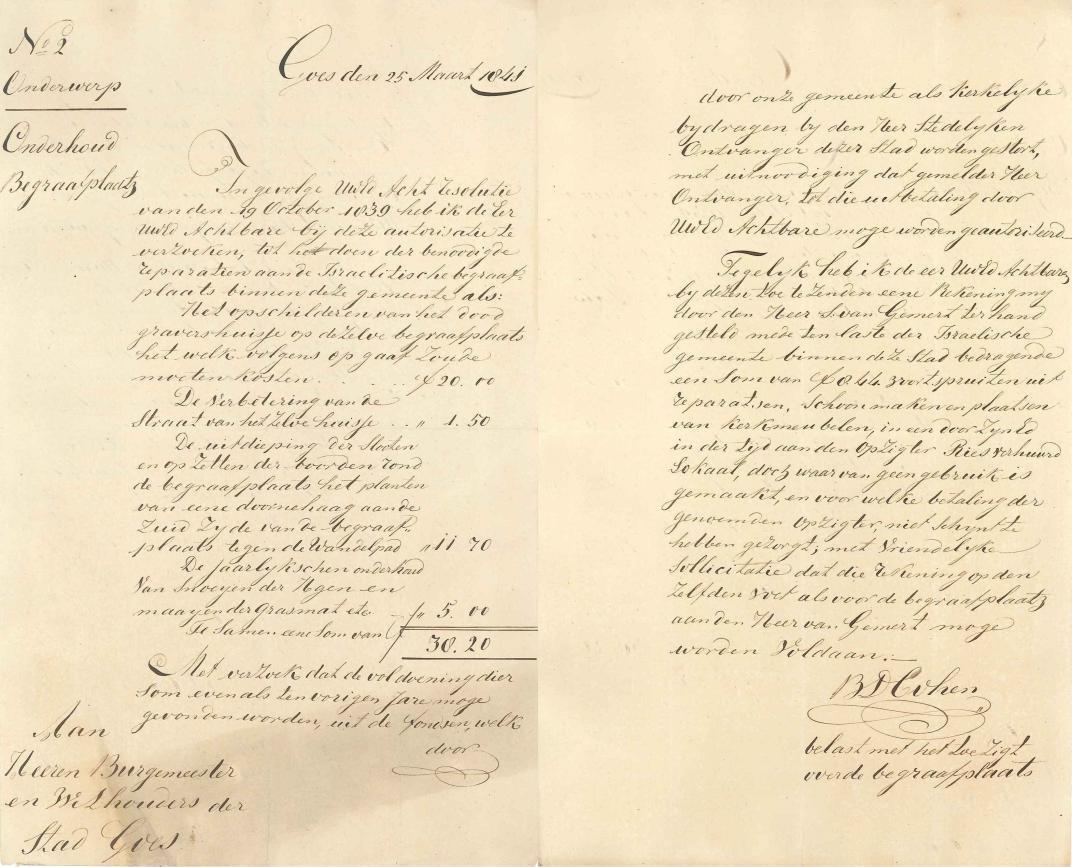 No 2
Onderwerp
Onderhoud
Begraafplaats
Goes den 25 Maart 1841
In gevolge UwEd Acht resolutie
van den 19 October 1839 heb ik de Eer
UwEd Achtbare bij deze autorisatie te
verzoeken, tot het doen der benoodigde
reparatien aan de Israelitische begraaf-
plaats binnen deze gemeente als:
Het opschilderen van het dood
gravershuisje op dezelve begraafplaats
het welk volgens op gaaf zoude
moeten kosten . . . . ƒ 20. 00
De Verbetering van de
Straat van het zelve huisje . . „ 1. 50
De uitdieping der Slooten
en op Zetten der boorden rond
de begraafplaats het planten
van eene doornehaag aan de
Zuid Zyde van de begraaf-
plaats tegen de Wandelpad „ 11 70
De jaarlykschen onderhoud
Van Snoeyen der Hgen en
maayen der grasmat etc. „ 5. 00
Te Samen eene Som van ƒ 38. 20
Met verzoek dat de voldoening dier
Som even als ten vorigen Jare moge
gevonden worden, uit de fondsen, welk
door
Aan
Heeren Burgemeester
en Wethouders der
Stad Goes
door onze gemeente als Kerkelyke
bydragen by den Heer Stedelyken
Ontvanger dezer Stad worden gestort,
met uitnoodiging dat gemelder Heer
Ontvanger, tot die uitbetaling door
UwEd Achtbare moge worden geautoriseerd.
Tegelyk heb ik de eer UwEd Achtbare
by dezen toe te zenden eene Rekening my
door den Heer van Gemert ter hand
gesteld mede ten laste der Israelische
gemeente binnen deze Stad bedragende
een Som van ƒ 8.44 voortspruiten uit
reparatien, Schoon maken en plaatsen
van kerkmeubelen, in een door ZynEd
in der tyd aan den Opzigter Ries verhuurd
Lokaal, doch waar van geen gebruik is
gemaakt, en voor welke betaling der
genoemden Opzigter, niet Schynt te
hebben gezorgt; met Vriendelyke
Sollicitatie dat die rekening op den
Zelfden voet als voor de begraafplaats
aan den Heer van Gemert moge
worden Voldaan.
BD Cohen
belast met het toezigt
over de begraafplaats